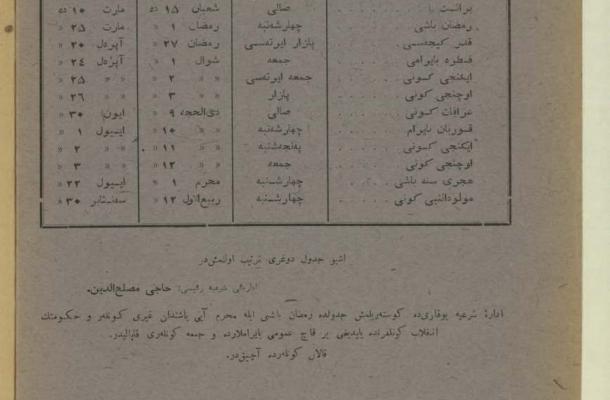 برائت . . . صالی شعبان ۱۵ ده مارت ۱۰ ده
رمضان باشی . . . چهارشنبه رمضان ۱ « مارت ۲۵ «
قدر کیجه‌سی . . . بازار ایرته‌سی رمضان ۲۷ « آپریل ۲۰ «
فطره بایرامی . . . جمعه شوال ۱ « آپریل ۲۴ «
ایکنجی کونی . . . جمعه ایرته‌سی « « ۲ « « « ۲۵ «
اوچنجی کونی . . . بازار « « ۳ « « « ۲۶ «
عرافات کونی . . . صالی ذی‌الحجه ۹ « ایون ۳۰ «
قوربان بایرام . . . چهارشنبه « « ۱۰ « اییول ۱ «
ایکنجی کونی . . . پنجشنبه « « ۱۱ « « « ۲ «
اوچنجی کونی . . . جمعه « « ۱۲ « « « ۳ «
هجری سنه باشی . . . چهارشنبه محرم ۱ « اییول ۲۲ «
مولودالنبی کونی . . . چهارشنبه ربیع‌الاول ۱۲ « ۳۰ «
اشبو جدول دوغری ترتیب اولنمش‌در
شرعیه رئیسی: حاجی مصلح‌الدین.
ادارهٔ شرعیه یوقاریده کوسته‌ریلمش جدولده رمضان باشی ایله محرم آیی باشندان غیری کونلهر و حکومتك
انقلاب کونلرنده یاپدیغی بر قاچ عمومی بایراملارده و جمعه کونله‌ری قاپالیدر.
قالان کونله‌رده آچیق‌در.